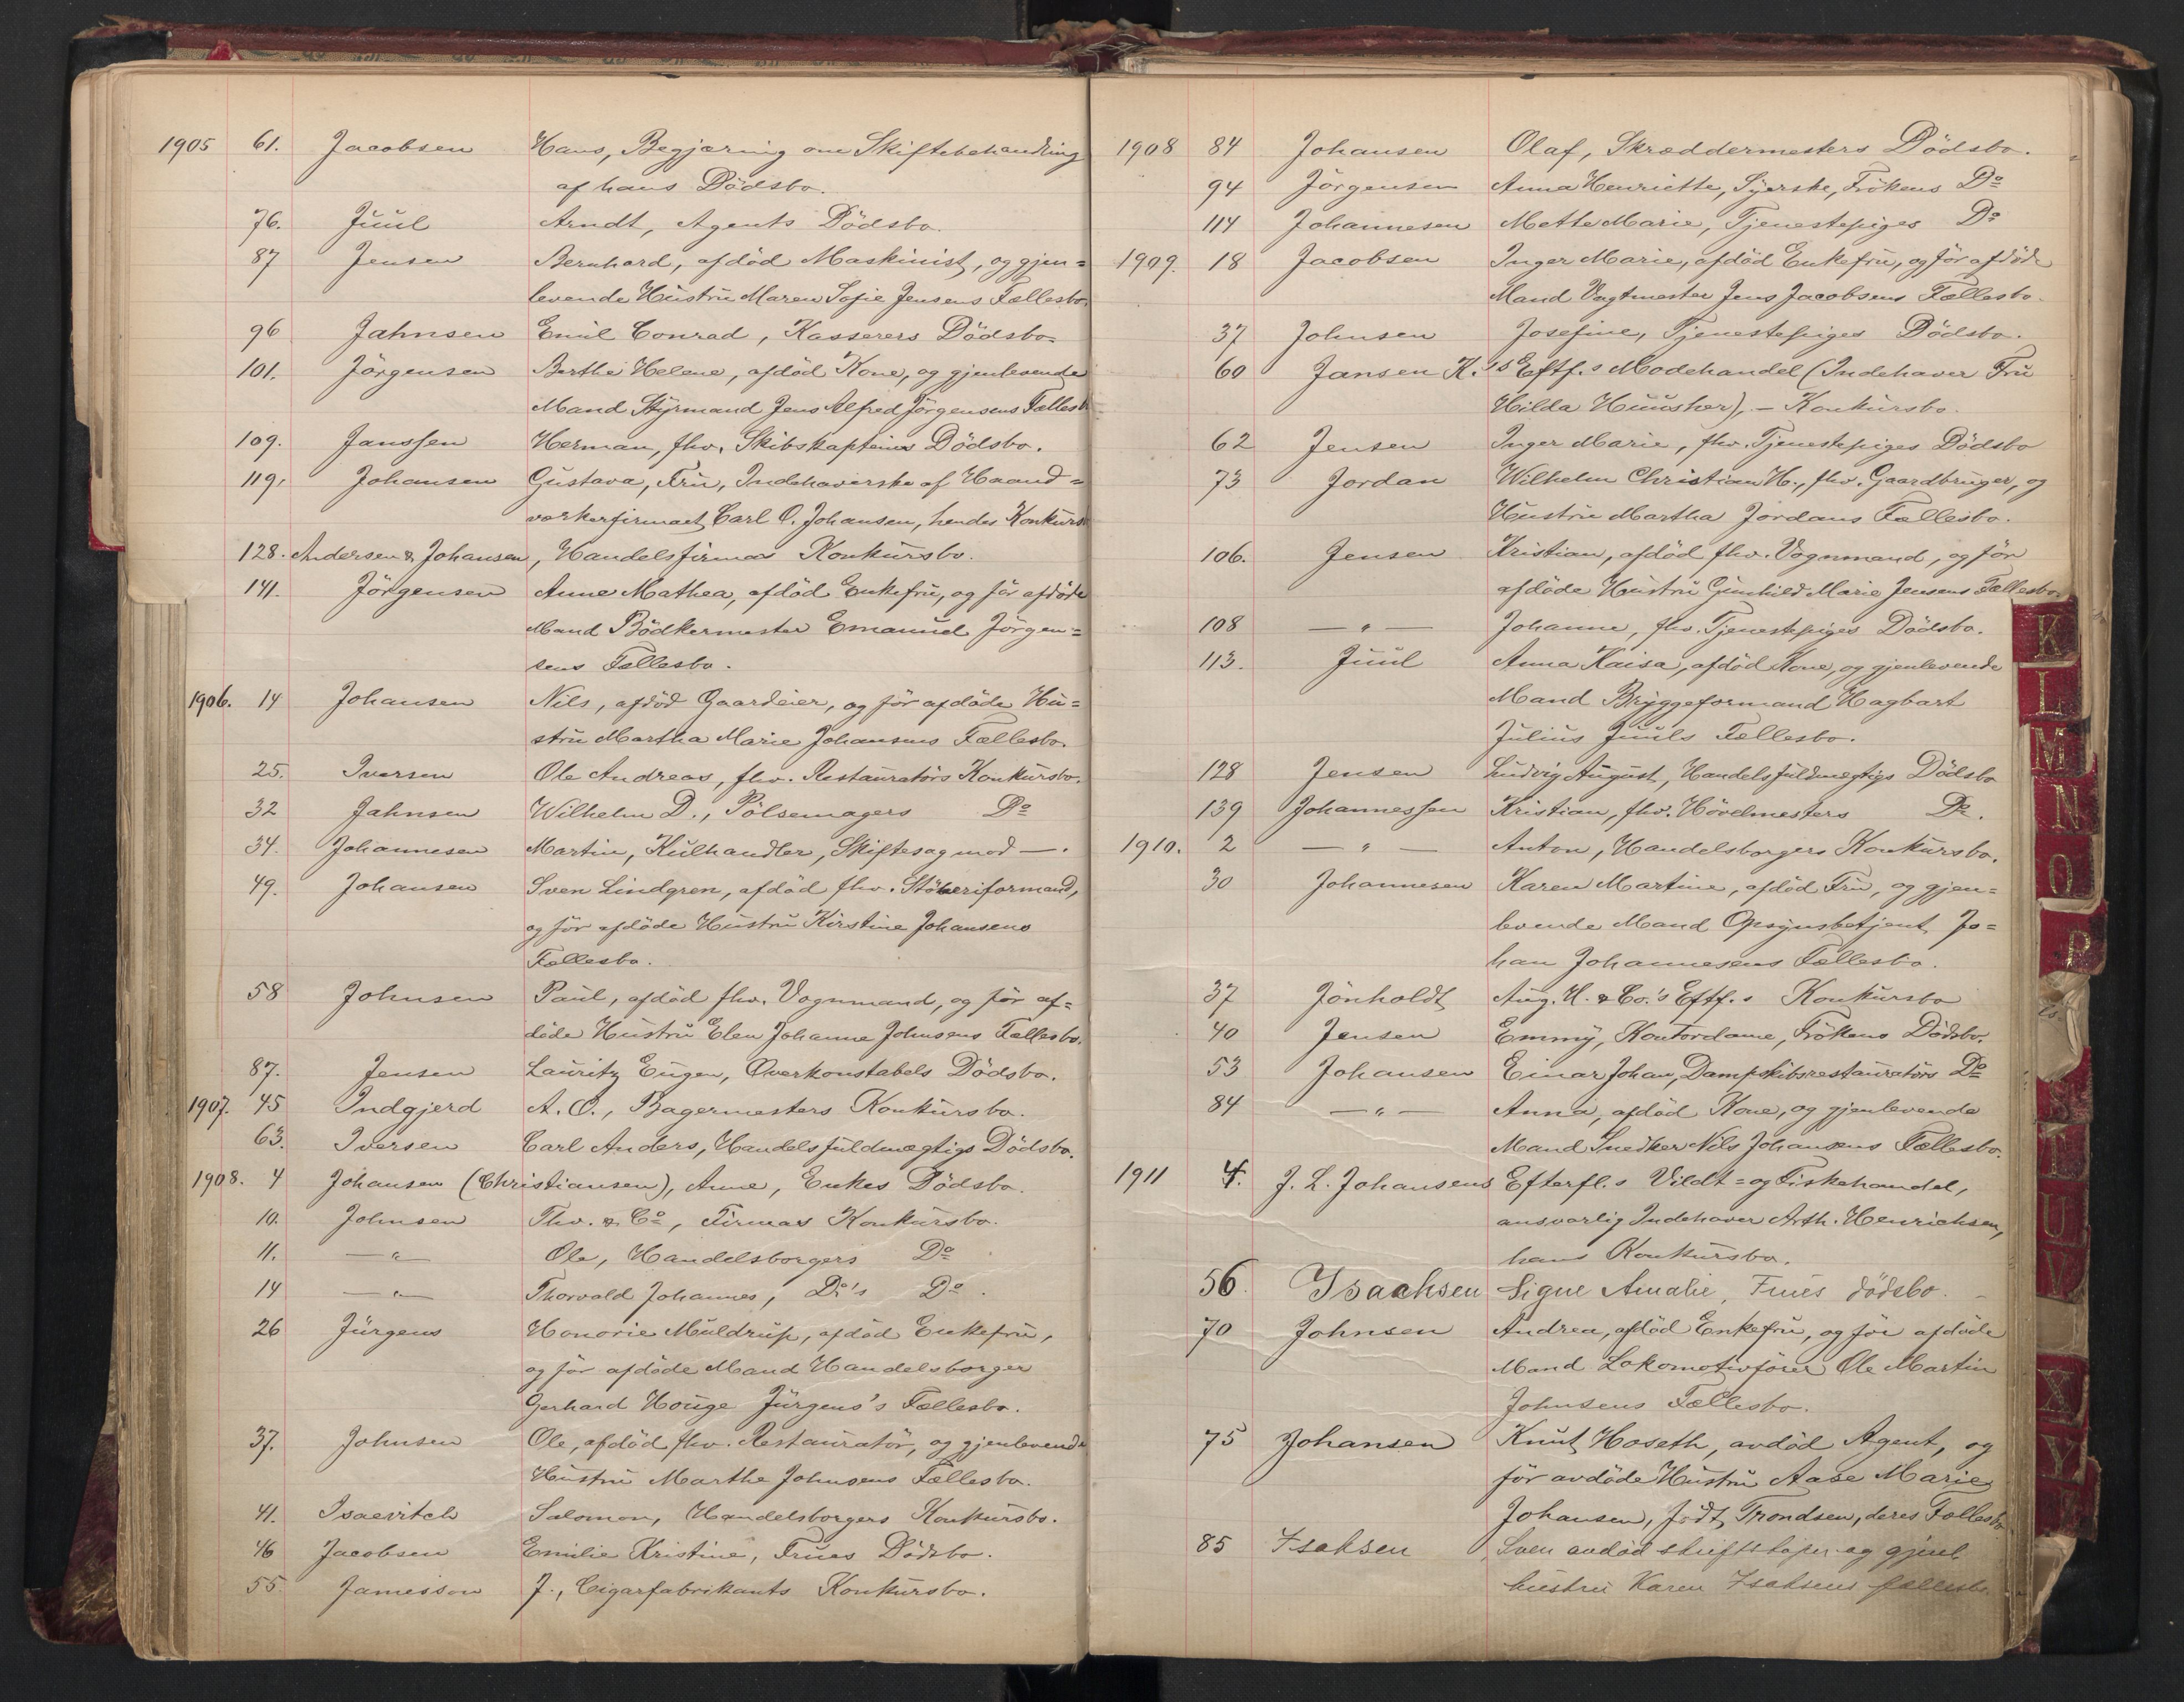 1905 61. Jacobsen Hans, Begjæring om Skiftebehandling
af hans Dödsbo.
76. Juul Arndt, Agents Dödsbo.
87 Jensen Bernhard, afdöd Maskinist, og gjen=
levende Hustru Maren Sofie Jensens Fællesbo.
96 Jahnsen Emil Conrad, Kasserers Dödsbo.
101. Jörgensen Berthe Helene, afdöd Kone, og gjenlevende
Mand Styrmand Jens Alfred Jörgensens Fællesb
109. Janssen Herman, fhv. Skibskapteins Dödsbo.
119. Johansen Gustava, Fru, Indehaverske af Haand=
værkerfirmaet Carl O. Johansen, hendes Konkurs
128. Andersen & Johansen, Handelsfirmas Konkursbo.
141. Jörgensen Anne Mathea, afdöd Enkefru, og för afdöde
Mand Bödkermester Emanuel Jörgen=
sens Fællesbo.
1906. 14 Johansen Nils, afdöd Gaardeier, og för afdöde Hu=
stru Martha Marie Johansens Fællesbo.
25. Iversen Ole Andreas, fhv. Restauratörs Konkursbo.
32 Jahnsen Wilhelm D., Pölsemagers Do
34. Johannesen Martin, Kulhandler, Skiftesag mod —.
49. Johansen Sven Lindgren, afdöd fhv. Stöberiformand,
og för afdöde Hustru Kirstine Johansens
Fællesbo.
58 Johnsen Paul, afdöd fhv. Vognmand, og för af=
döde Hustru Elen Johanne Johnsens Fællesbo.
87. Jensen Lauritz Eugen, Overkonstabels Dödsbo.
1907. 45 Indgjerd A. O., Bagermesters Konkursbo.
63. Iversen Carl Anders, Handelsfuldmægtigs Dödsbo.
1908. 4 Johansen (Christiansen), Anne, Enkes Dödsbo.
10. Johnsen Thv. & Co, Firmas Konkursbo.
11. — " Ole, Handelsborgers Do
14 — " — Thorvald Johannes, Do's Do.
26 Jürgens Honorie Muldrup, afdöd Enkefru,
og för afdöde Mand Handelsborger
Gerhard Houge Jürgens's Fællesbo.
37. Johnsen Ole, afdöd fhv. Restauratör, og gjenlevende
Hustru Marthe Johnsens Fællesbo.
41. Isaevitch Salomon, Handelsborgers Konkursbo.
46 Jacobsen Emilie Kristine, Frues Dödsbo.
55. Jamesson J., Cigarfabrikants Konkursbo.
1908 84 Johansen Olaf, Skræddermesters Dödsbo.
94 Jörgensen Anna Henriette, Syerske, Frökens Do
114 Johannesen Mette Marie, Tjenestepiges Do
1909. 18 Jacobsen Inger Marie, afdöd Enkefru, og för afdöde
Mand Vagtmester Jens Jacobsens Fællesbo.
37 Johnsen Josefine, Tjenestepiges Dödsbo.
60 Jansen K.'s Eftf.s Modehandel (Indehaver Fru
Hilda Huusher), — Konkursbo.
62 Jensen Inger Marie, fhv. Tjenestepiges Dödsbo
73 Jordan Wilhelm Christian H., fhv. Gaardbruger, og
Hustru Martha Jordans Fællesbo.
106. Jensen Kristian, afdöd fhv. Vognmand, og för
afdöde Hustru Gunhild Marie Jensens Fællesbo.
108 — " — Johanne, fhv. Tjenestepiges Dödsbo.
113. Juul Anna Kaisa, afdöd Kone, og gjenlevende
Mand Bryggeformand Hagbart
Julius Juuls Fællesbo.
128 Jensen Ludvig August, Handelsfuldmægtigs Dödsbo
139 Johannessen Kristian, fhv. Hövelmesters Do.
1910. 2 — " — Anton, Handelsborgers Konkursbo.
30 Johannesen Karen Martine, afdöd Fru, og gjen=
levende Mand Opsynsbetjent Jo=
han Johannesens Fællesbo.
37 Jönholdt Aug. H. & Co.'s Eftf.s Konkursbo
40 Jensen Emmy, Kontordame, Frökens Dödsbo.
53 Johansen Einar Johan, Dampskibsrestauratörs Do
84 — " — Anna, afdöd Kone, og gjenlevende
Mand Snedker Nils Johansens Fællesbo.
1911 4. J. L. Johansens Efterfl.s Vildt= og Fiskehandel,
ansvarlig Indehaver Arth. Henrichsen,
hans Konkursbo.
56 Isachsen Signe Amalie, Frues dödsbo.
70 Johnsen Andrea, afdöd Enkefru, og för afdöde
Mand Lokomotivförer Ole Martin
Johnsens Fællesbo.
75 Johansen Knut Hoseth, avdöd Agent, og
för avdöde Hustru Aase Marie
Johansen, född Trondsen, deres Fællesbo
85 Isaksen Sven avdöd og gjenl.
hustru Karen Isaksens fællesbo
K
L
M
N
O
P
S
T
U
V
X
Y